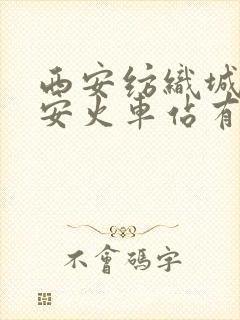 西安纺織城
安火車佔有
不會碼字